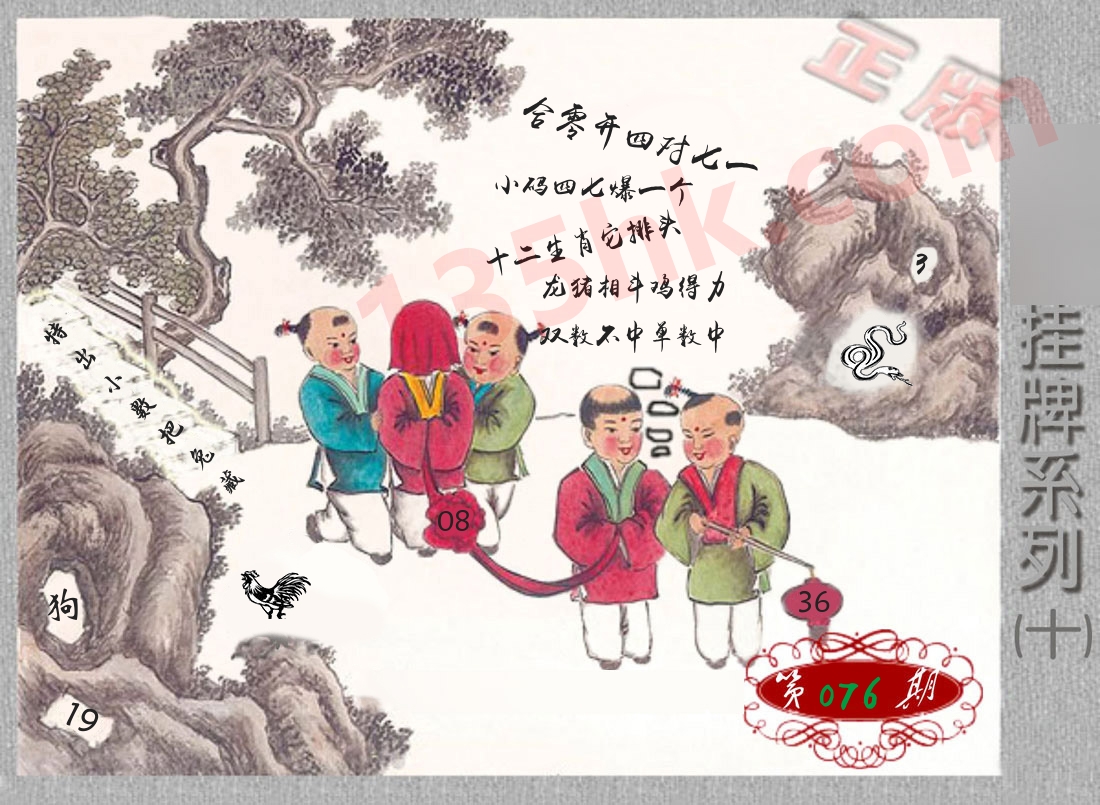 正版
合零开四对七一
小码四七爆一个
十二生肖它排头
龙猪相斗鸡得力
双数不中单数中
135hk.com
3
特出小數把兔藏
08
36
狗
19
第076期
挂牌系列(十)